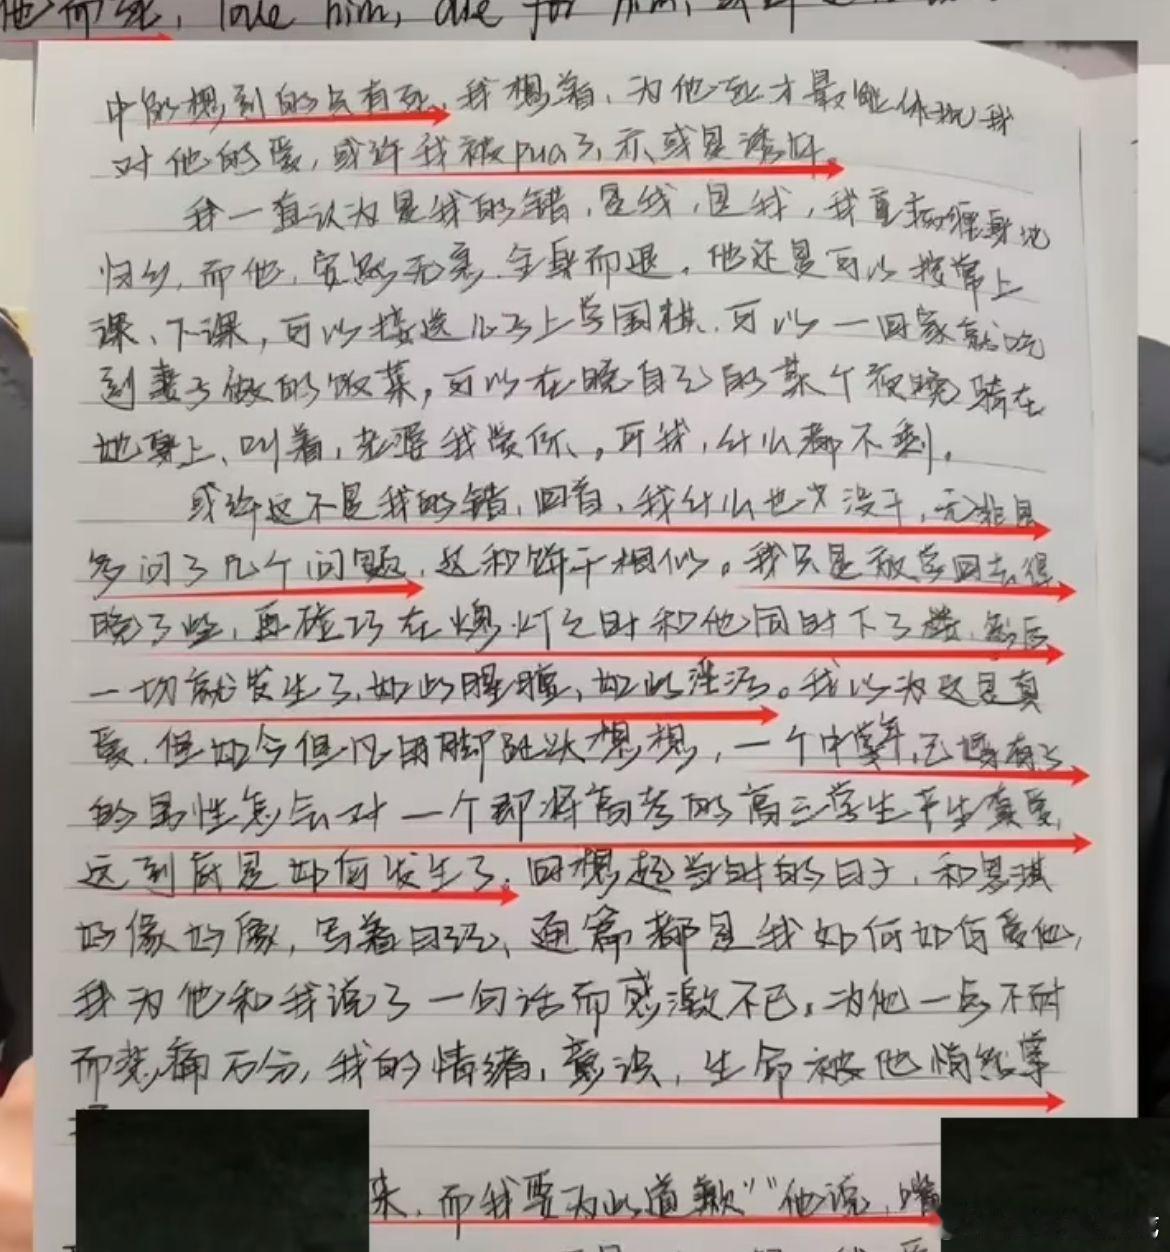 他而死, love him, die for him, 或许
中能想到的只有死。我想着，为他死才最能体现我
对他的爱，或许我被pua了，亦或是诱奸。
我一直认为是我的错，是我，是我，我重病缠身
归乡，而他，安然无恙，全身而退。他还是可以按常上
课、下课，可以接送儿子上学围棋，可以一回家就吃
到妻子做的饭菜，可以在晚自己的某个夜晚骑在
她身上、叫着，老婆我爱你、。可我，什么都不剩。
或许这不是我的错，回首，我什么也没干，无非是
多问了几个问题，这和饼干相似。我只是放学回去得
晚了些，再碰巧在熄灯之时和他同时下了楼，然后
一切就发生了，如此腥膻，如此淫污。我以为这是真
爱，但如今但凡用脚趾头想想，一个中年，已婚有子
的男性怎会对一个即将高考的高三学生产生真爱，
这到底是如何发生了。回想起当时的日子，和思琪
好像好像，写着日记、通篇都是我如何如何爱他，
我为他和我说了一句话而感激不已，为他一点不耐
而悲痛万分，我的情绪，意识，生命被他悄然掌
来，而我要为此道歉““他说，嘴